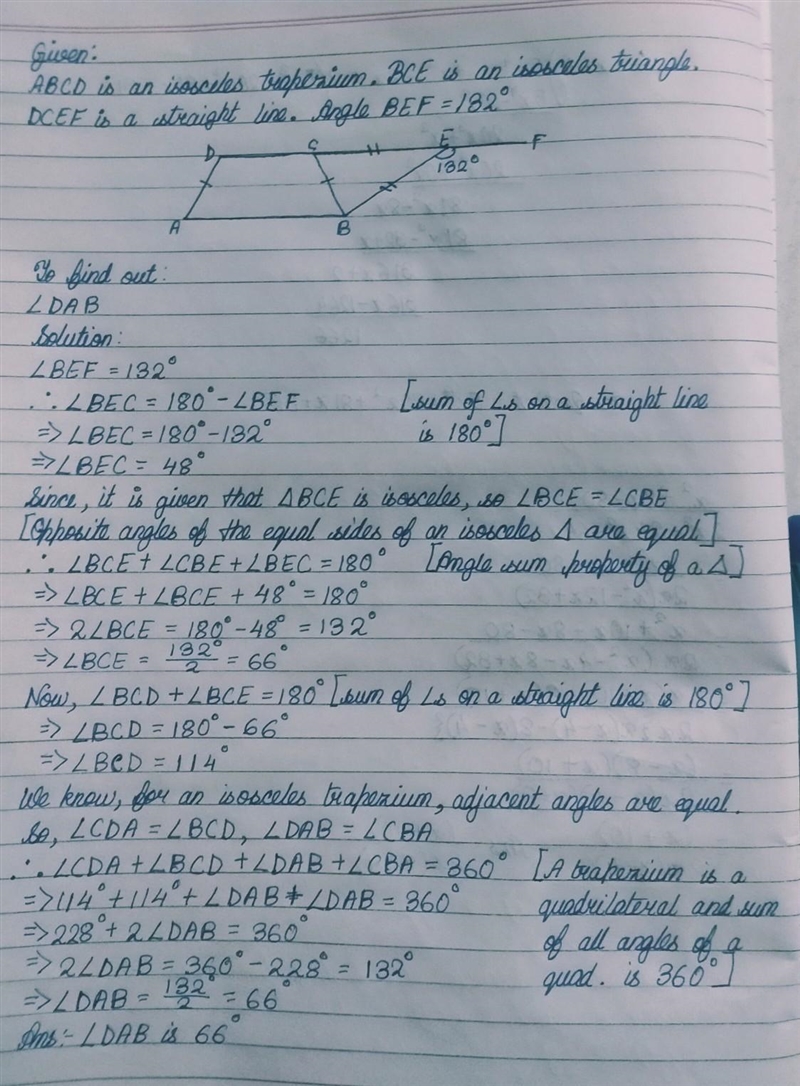 Given:
ABCD is an isosceles trapezium. BCE is an isosceles triangle.
DCEF is a straight line. Angle BEF = 132°
D C E F
132°
A B
To find out:
∠DAB
Solution:
∠BEF = 132°
∴ ∠BEC = 180° - ∠BEF [sum of ∠s on a straight line
=> ∠BEC = 180° - 132° is 180°]
=> ∠BEC = 48°
Since, it is given that △BCE is isosceles, so ∠BCE = ∠CBE
[Opposite angles of the equal sides of an isosceles △ are equal]
∴ ∠BCE + ∠CBE + ∠BEC = 180° [Angle sum property of a △]
=> ∠BCE + ∠BCE + 48° = 180°
=> 2∠BCE = 180° - 48° = 132°
=> ∠BCE = 132°/2 = 66°
Now, ∠BCD + ∠BCE = 180° [sum of ∠s on a straight line is 180°]
=> ∠BCD = 180° - 66°
=> ∠BCD = 114°
We know, for an isosceles trapezium, adjacent angles are equal.
So, ∠CDA = ∠BCD, ∠DAB = ∠CBA
∴ ∠CDA + ∠BCD + ∠DAB + ∠CBA = 360° [A trapezium is a
=> 114° + 114° + ∠DAB + ∠DAB = 360° quadrilateral and sum
=> 228° + 2∠DAB = 360° of all angles of a
=> 2∠DAB = 360° - 228° = 132° quad. is 360°]
=> ∠DAB = 132°/2 = 66°
Ans:- ∠DAB is 66°